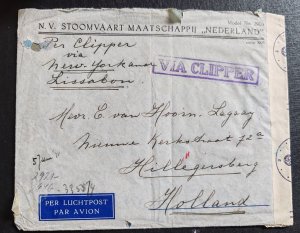 N. V. STOOMVAART MAATSCHAPPIJ „NEDERLAND"
Per Clipper
via
New-York and
Lissabon.
VIA CLIPPER
Mevr. C. van Hooin-Lagaay
Nieuwe Kerkstraat 72a
Hillegersberg
Holland
PER LUCHTPOST
PAR AVION